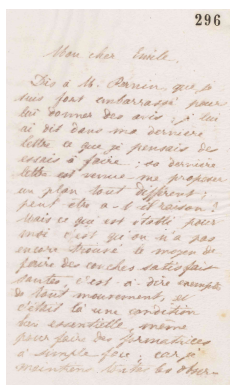 296
Mon cher Emile,
Dis à M. Perrin, que je
suis fort embarrassé pour
lui donner des avis; je lui
ai dit dans ma dernière
lettre ce que je pensais des
essais à faire; sa dernière
lettre est venue me proposer
un plan tout différent;
peut être a-t-il raison?
Mais ce qui est établi pour
moi c'est qu'on n'a pas
encore trouvé le moyen de
faire des couches satisfai
santes, c'est à dire exemptes
de tout mouvement, et
c'était là une condition
bien essentielle, même
pour faire des formatrices
à simple face, car je
maintiens toutes les obser-